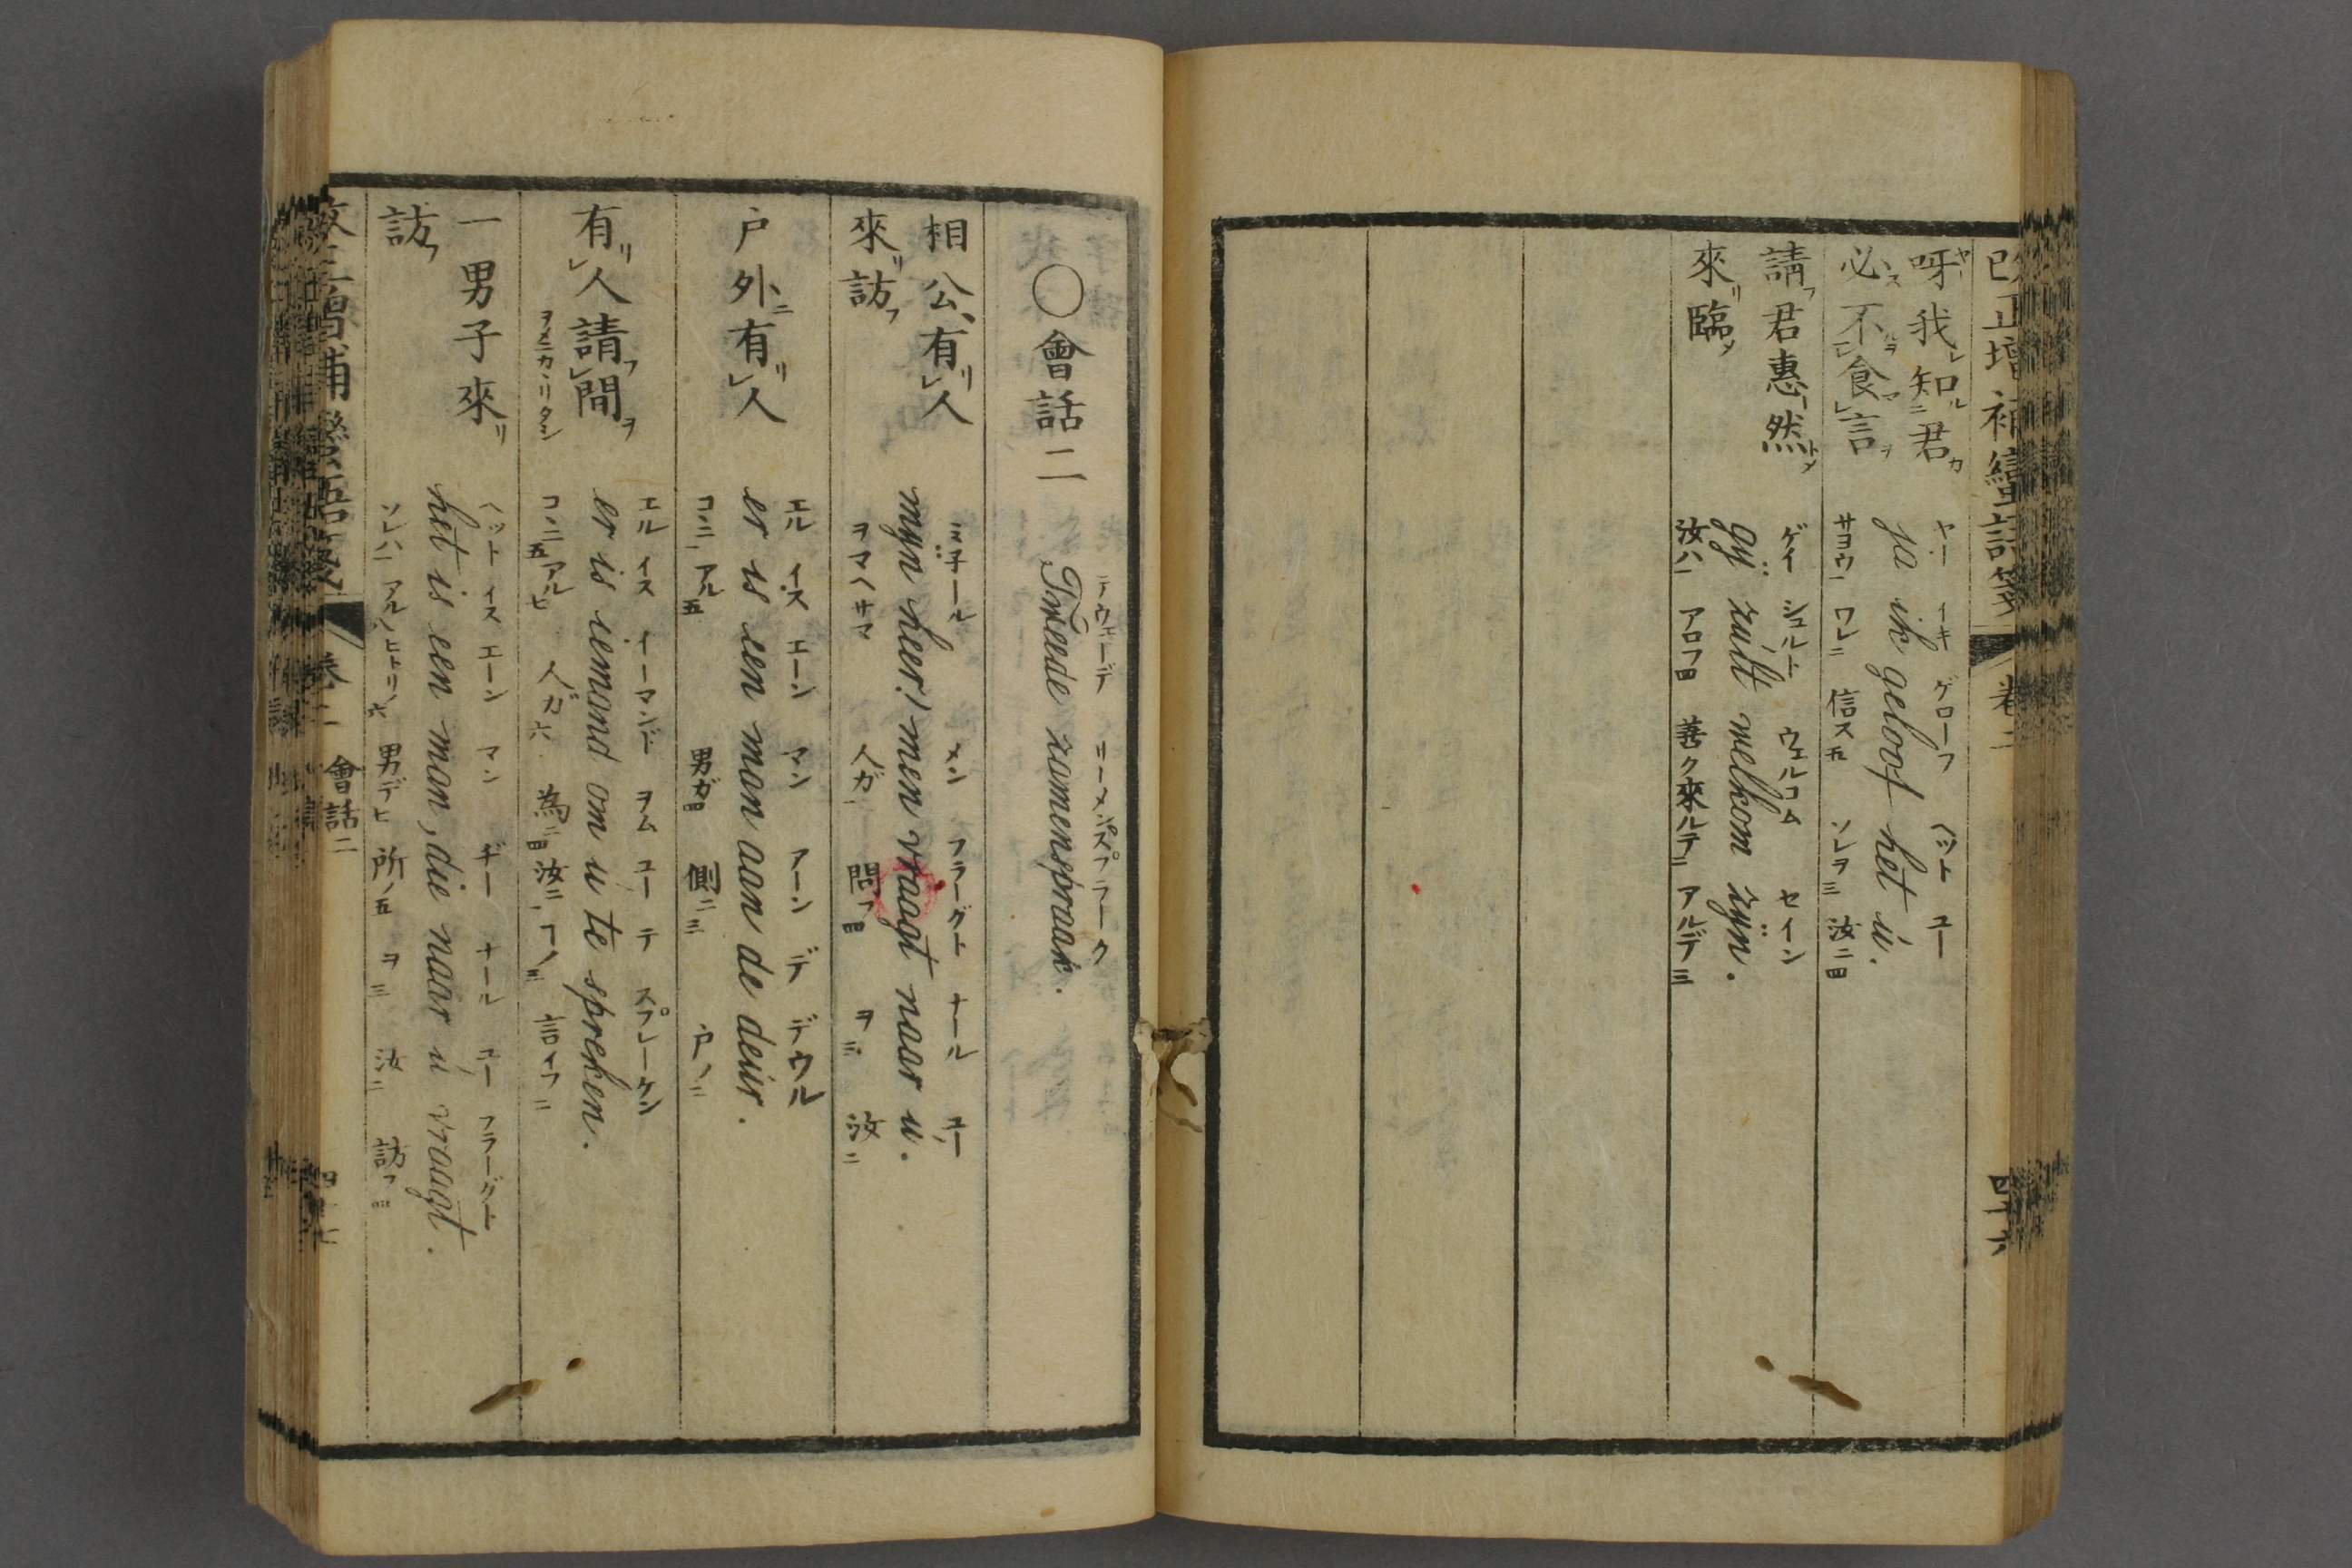 改正増補蠻語箋 卷二 四十六
呀我知君
必不食言
ヤー イキ ゲローフ ヘット ユー
ja ik geloof het ú.
サヨウ一 ワレ二 信ス五 ソレヲ三 汝ニ四
請君惠然
來臨
ゲイ シュルト ウェルコム セイン
gÿ zult welkom zÿn.
汝ハ一 アロフ四 善ク來ルテ二 アルデ三
〇會話二
テウェーデ サーメンスプラーク
Tweede zamenspraak.
相公、有人
來訪
ミ子ール メン フラーグト ナール ユー
mÿn heer! men vraagt naar u.
ヲマヘサマ 人ガ一 問フ四 ヲ三 汝二
戸外有人
エル イス エーン マン アーン デ デウル
er is een man aan de deúr.
コヽニ一 アル五 男ガ四 側ニ三 戸ノ二
有人請間
ヲメニカヽリタシ
エル イス イーマンド ヲム ユー テ スプレーケン
er is iemand om u te spreken.
コヽニ五 アル七 人ガ六 為ニ四 汝ニ一 コノ三 言イフ二
一男子來
訪
ヘット イス エーン マン ヂー ナール ユー フラーグト
het is een man, die naar ú vraagt.
ソレハ一 アル八 ヒトリノ六 男デ七 所ノ五 ヲ三 汝二 訪フ四
改正増補蠻語箋 卷二 會話二 四十七